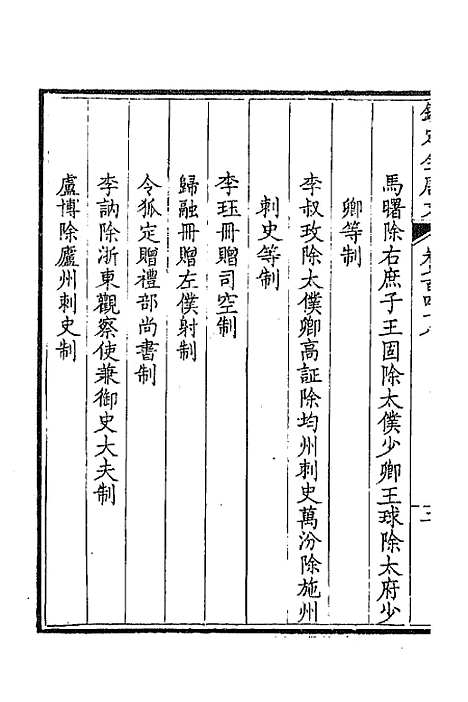 馬曙除右庶子王固除太僕少卿王球除太府少
卿等制
李叔玫除太僕卿高証除均州刺史萬汾除施州
刺史等制
李珏冊贈司空制
歸融冊贈左僕射制
令狐定贈禮部尚書制
李訥除浙東觀察使兼御史大夫制
盧博除廬州刺史制